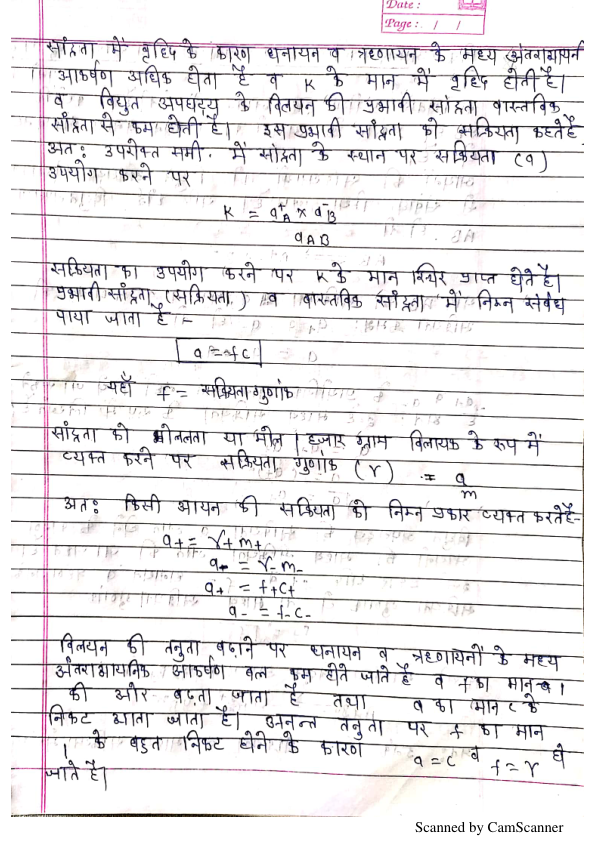 Date :
Page : / /
सांद्रता में वृद्धि के कारण धनायन व ऋणायन के मध्य अंतराआयनी
आकर्षण अधिक होता है व K के मान में वृद्धि होती है।
व विद्युत अपघट्य के विलयन की प्रभावी सांद्रता वास्तविक
सांद्रता से कम होती है। इस प्रभावी सांद्रता को सक्रियता कहते है
अतः उपरोक्त समी. में सांद्रता के स्थान पर सक्रियता (a)
उपयोग करने पर
K = a⁺A × a⁻B
aAB
सक्रियता का उपयोग करने पर K के मान स्थिर प्राप्त होते है।
प्रभावी सांद्रता (सक्रियता) व वास्तविक सांद्रता में निम्न संबंध
पाया जाता है :-
a = fc
यहाँ f = सक्रियता गुणांक
सांद्रता को मोललता या मोल / हजार ग्राम विलायक के रूप में
व्यक्त करने पर सक्रियता गुणांक (γ) = a
m
अतः किसी आयन की सक्रियता को निम्न प्रकार व्यक्त करते है-
a+ = γ+ m+
a- = γ- m-
a+ = f+ C+
a- = f- C-
विलयन की तनुता बढ़ाने पर धनायन व ऋणायनों के मध्य
अंतराआयनिक आकर्षण बल कम होते जाते है व f का मान 1
की ओर बढ़ता जाता है तथा a का मान C के
निकट आता जाता है। अनन्त तनुता पर f का मान
1 के बहुत निकट होने के कारण a = C व f = γ हो
जाते है।
Scanned by CamScanner